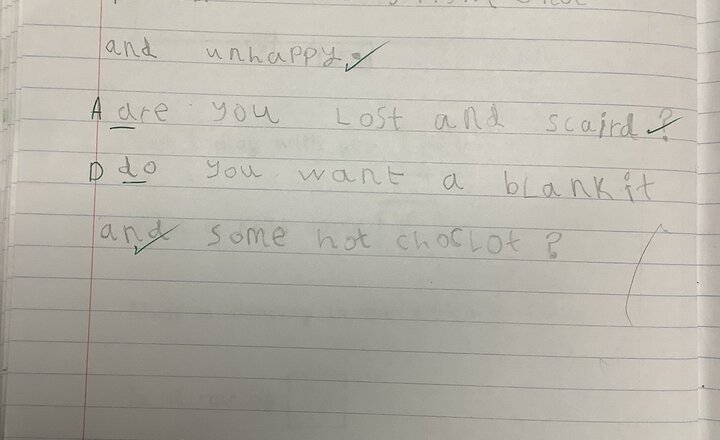 and unhappy.
A are you Lost and scaird?
D do you want a blankit
and some hot choclot?